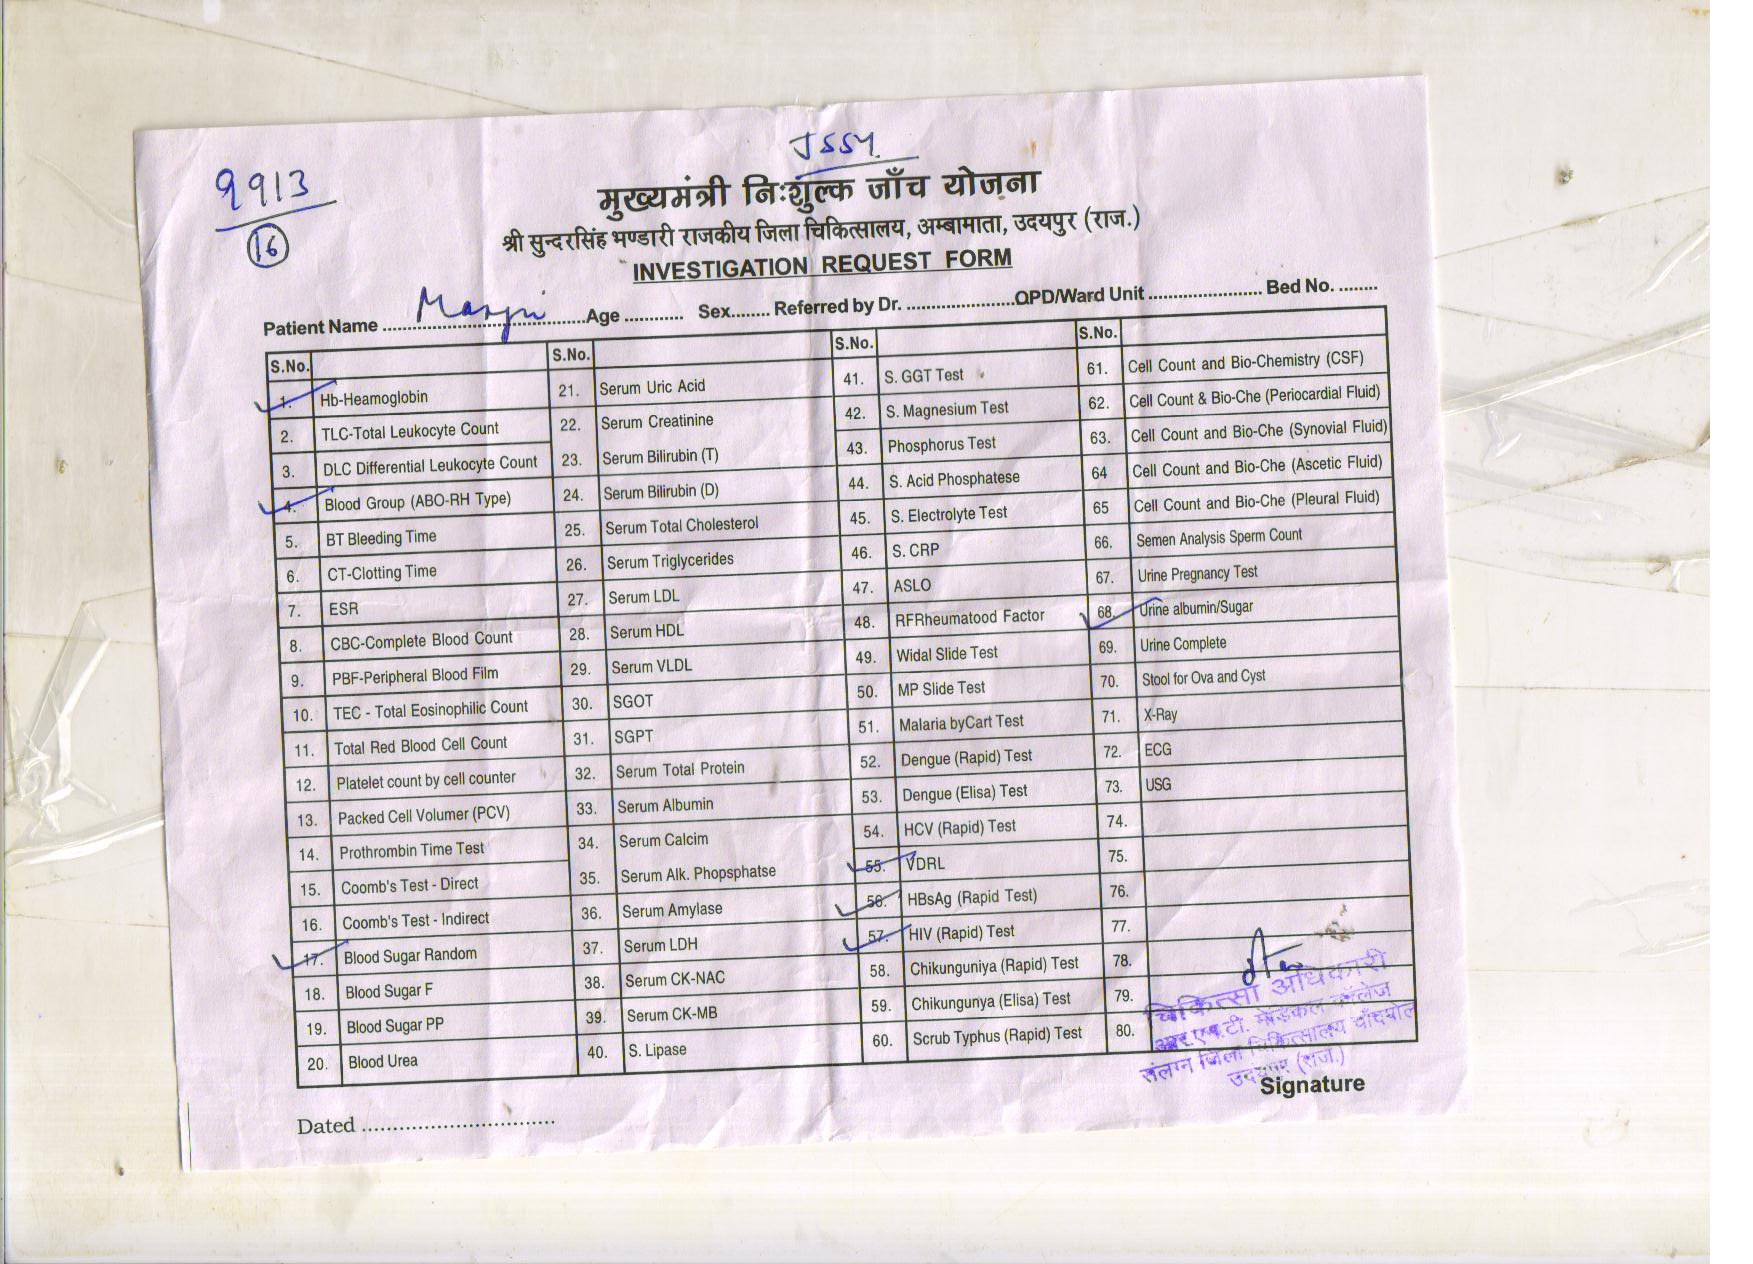 JSSY
9913
16
मुख्यमंत्री निःशुल्क जाँच योजना
श्री सुन्दरसिंह भण्डारी राजकीय जिला चिकित्सालय, अम्बामाता, उदयपुर (राज.)
INVESTIGATION REQUEST FORM
Patient Name .......... Age .......... Sex........ Referred by Dr. .......... OPD/Ward Unit .......... Bed No. ........
S.No. S.No. S.No. S.No.
1. Hb-Heamoglobin 21. Serum Uric Acid 41. S. GGT Test 61. Cell Count and Bio-Chemistry (CSF)
2. TLC-Total Leukocyte Count 22. Serum Creatinine 42. S. Magnesium Test 62. Cell Count & Bio-Che (Periocardial Fluid)
3. DLC Differential Leukocyte Count 23. Serum Bilirubin (T) 43. Phosphorus Test 63. Cell Count and Bio-Che (Synovial Fluid)
4. Blood Group (ABO-RH Type) 24. Serum Bilirubin (D) 44. S. Acid Phosphatese 64 Cell Count and Bio-Che (Ascetic Fluid)
5. BT Bleeding Time 25. Serum Total Cholesterol 45. S. Electrolyte Test 65 Cell Count and Bio-Che (Pleural Fluid)
6. CT-Clotting Time 26. Serum Triglycerides 46. S. CRP 66. Semen Analysis Sperm Count
7. ESR 27. Serum LDL 47. ASLO 67. Urine Pregnancy Test
8. CBC-Complete Blood Count 28. Serum HDL 48. RFRheumatood Factor 68. Urine albumin/Sugar
9. PBF-Peripheral Blood Film 29. Serum VLDL 49. Widal Slide Test 69. Urine Complete
10. TEC - Total Eosinophilic Count 30. SGOT 50. MP Slide Test 70. Stool for Ova and Cyst
11. Total Red Blood Cell Count 31. SGPT 51. Malaria byCart Test 71. X-Ray
12. Platelet count by cell counter 32. Serum Total Protein 52. Dengue (Rapid) Test 72. ECG
13. Packed Cell Volumer (PCV) 33. Serum Albumin 53. Dengue (Elisa) Test 73. USG
14. Prothrombin Time Test 34. Serum Calcim 54. HCV (Rapid) Test 74.
15. Coomb's Test - Direct 35. Serum Alk. Phopsphatse 55. VDRL 75.
16. Coomb's Test - Indirect 36. Serum Amylase 56. HBsAg (Rapid Test) 76.
17. Blood Sugar Random 37. Serum LDH 57. HIV (Rapid) Test 77.
18. Blood Sugar F 38. Serum CK-NAC 58. Chikunguniya (Rapid) Test 78.
19. Blood Sugar PP 39. Serum CK-MB 59. Chikungunya (Elisa) Test 79.
20. Blood Urea 40. S. Lipase 60. Scrub Typhus (Rapid) Test 80.
चिकित्सा अधिकारी
आर.एन.टी. मेडिकल कॉलेज
संलग्न जिला चिकित्सालय चाँदपोल
उदयपुर (राज.)
Signature
Dated ..............................